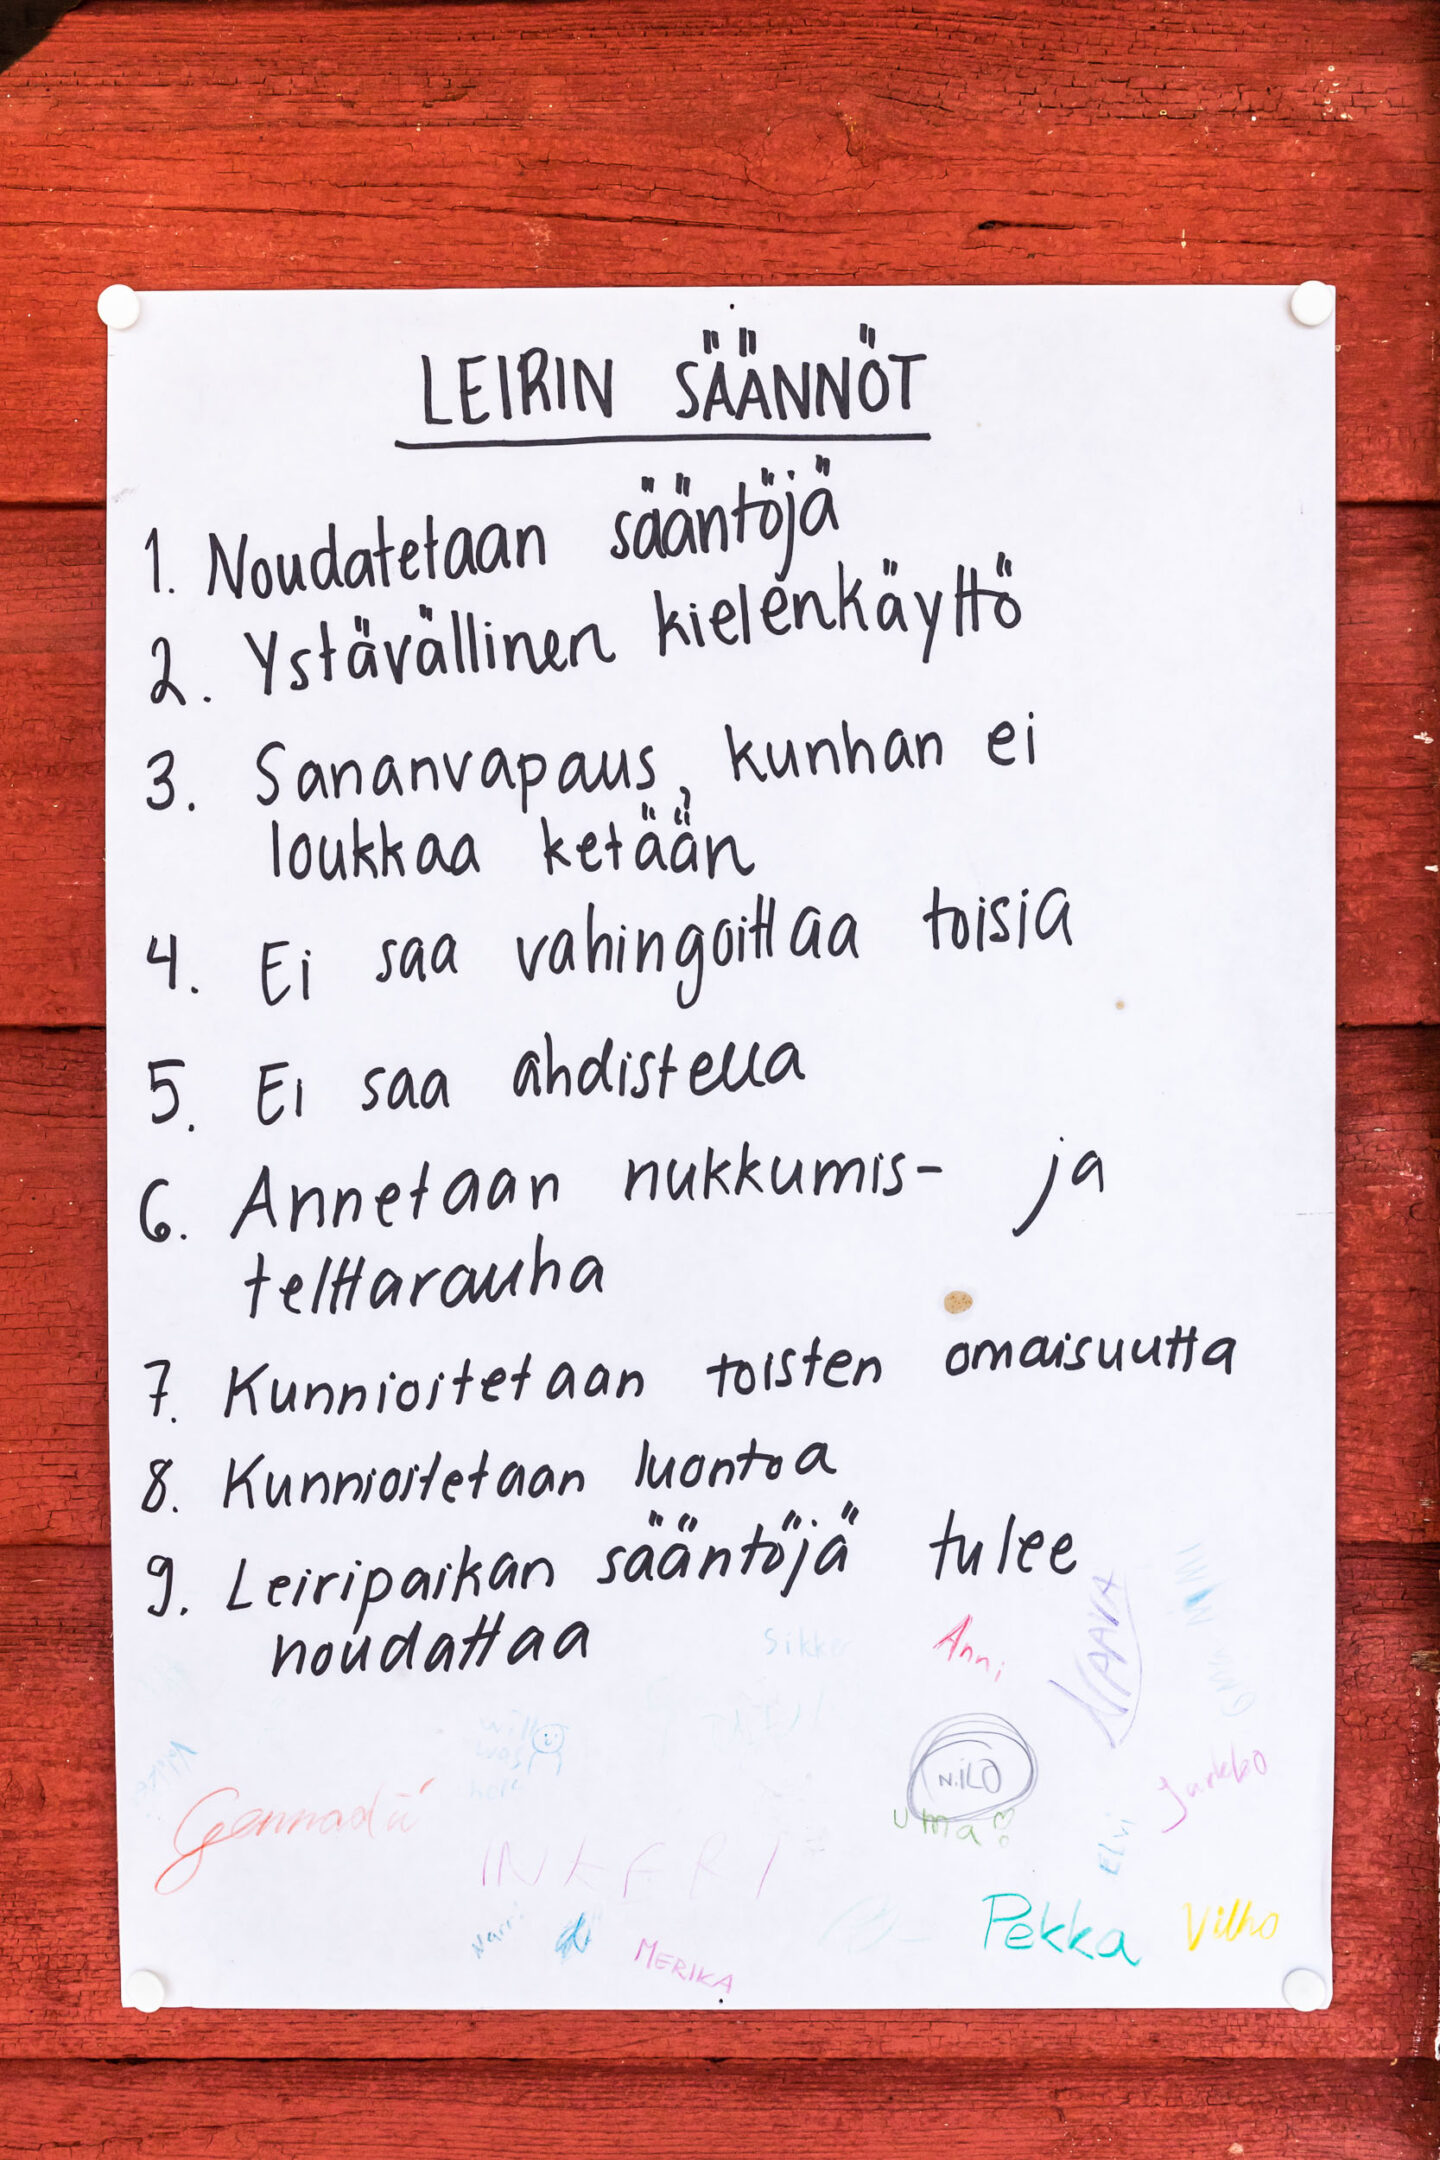 LEIRIN SÄÄNNÖT
1. Noudatetaan sääntöjä
2. Ystävällinen kielenkäyttö
3. Sananvapaus, kunhan ei
loukkaa ketään
4. Ei saa vahingoittaa toisia
5. Ei saa ahdistella
6. Annetaan nukkumis- ja
telttarauha
7. Kunnioitetaan toisten omaisuutta
8. Kunnioitetaan luontoa
9. Leiripaikan sääntöjä tulee
noudattaa
Anni
NAAVA
NILO
Jarkko
Gennadii
Uma
Elvi
INKERI
Pekka
Vilho
MERIKA